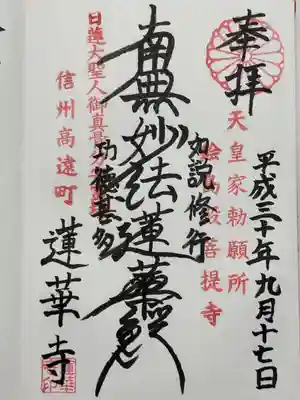 奉拝
平成三十年九月十七日
天皇家勅願所
絵島殿菩提寺
如説修行
南無妙法蓮華経
功徳甚多
日蓮大聖人御真骨
信州高遠町
蓮華寺